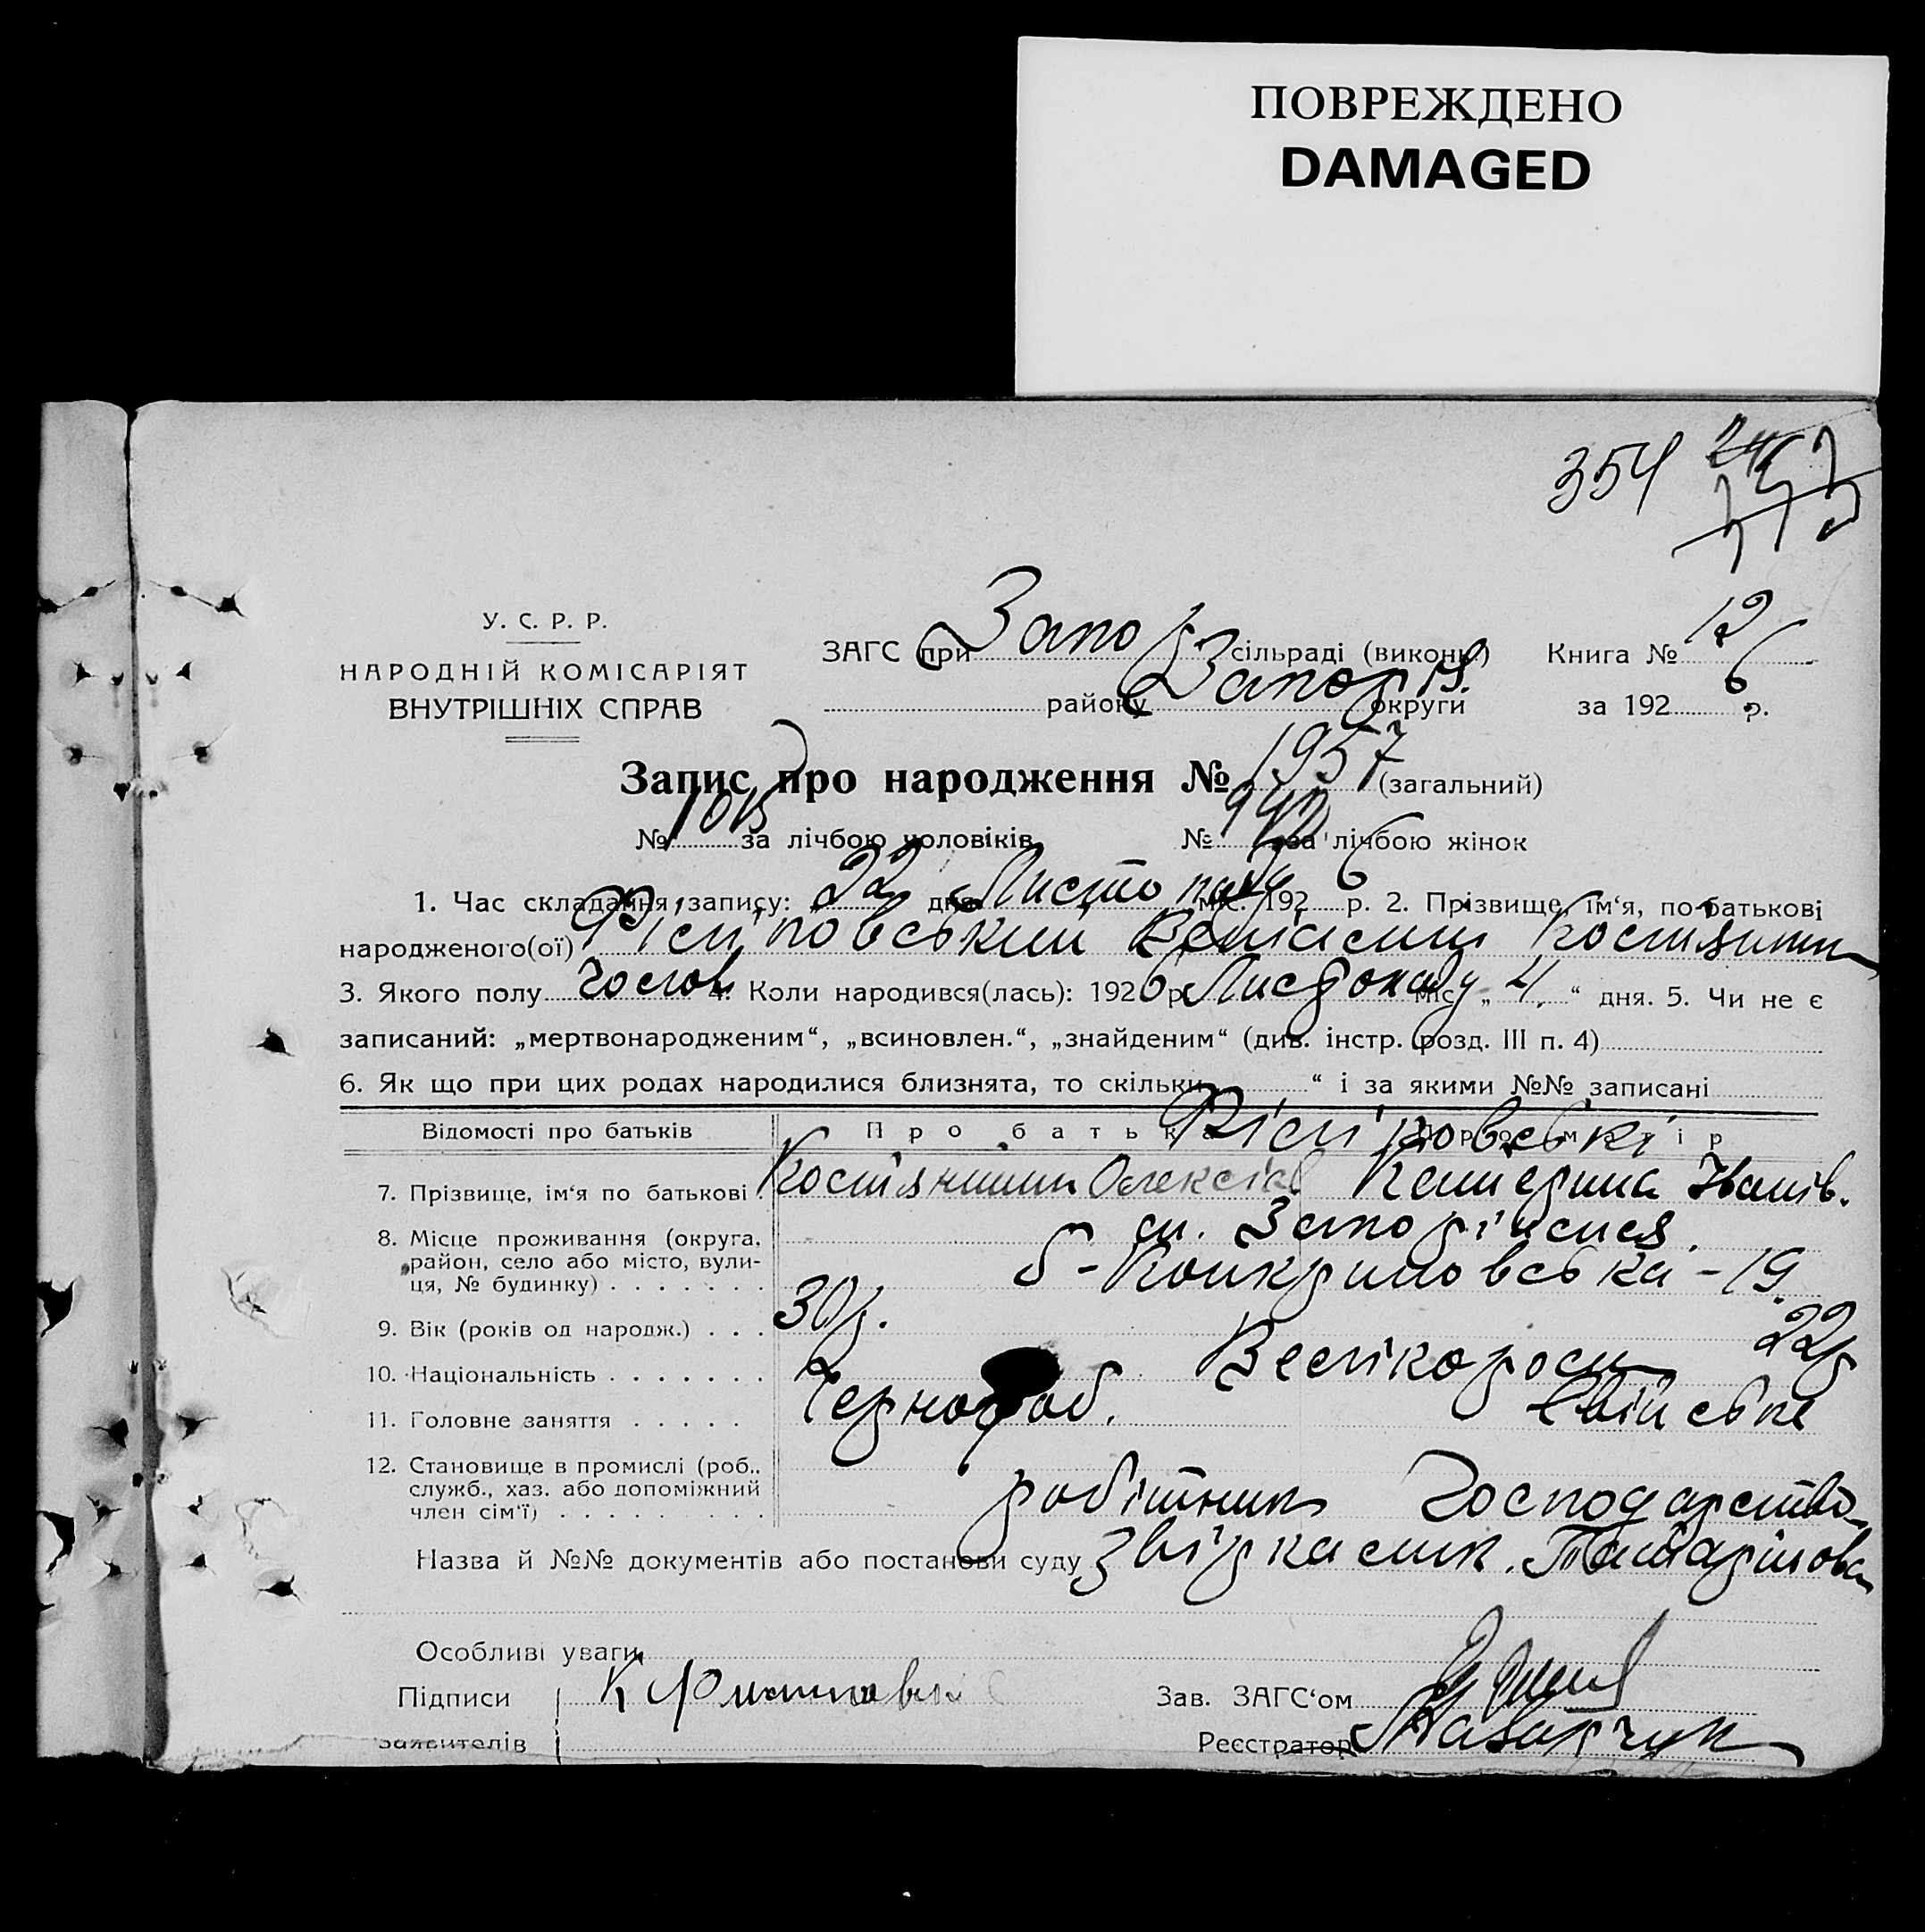 ПОВРЕЖДЕНО
DAMAGED
354
У. С. Р. Р.
НАРОДНІЙ КОМІСАРІЯТ
ВНУТРІШНІХ СПРАВ
ЗАГС при Запор сільраді (виконк.) Книга № 12
району Запоріз. округи за 1926 р.
Запис про народження № 1957 (загальний)
№ 1015 за лічбою чоловіків № 942 за лічбою жінок
1. Час складання запису: „22 дня Листопаду міс. 1926 р. 2. Прізвище, ім‘я, по-батькові
народженого(ої) Філіповський Костянтин
3. Якого полу Чолов 4. Коли народився(лась): 1926 р. Листопаду міс. „4.“ дня. 5. Чи не є
записаний: „мертвонародженим“, „всиновлен.“, „знайденим“ (див. інстр. розд. III п. 4)
6. Як що при цих родах народилися близнята, то скільки “ і за якими №№ записані
Відомості про батьків Про батька Про матір
Філіповські
7. Прізвище, ім‘я по батькові Костянтин Олексієв Катерина Іванів.
8. Місце проживання (округа, м. Запоріжжя.
район, село або місто, вули-
ця, № будинку) . . . . . . . -19.
9. Вік (років од народж.) . . . 30р. 22р
10. Національність . . . . . . . Велікороси
11. Головне заняття . . . . . Чернороб. Свійське
12. Становище в промислі (роб.,
служб., хаз. або допоміжний
член сім‘ї) . . . . . . . . . робітник Господарство
Назва й №№ документів або постанови суду
Особливі уваги
Підписи К Филиповский Зав. ЗАГС‘ом
заявителів Реєстратор Назарчук